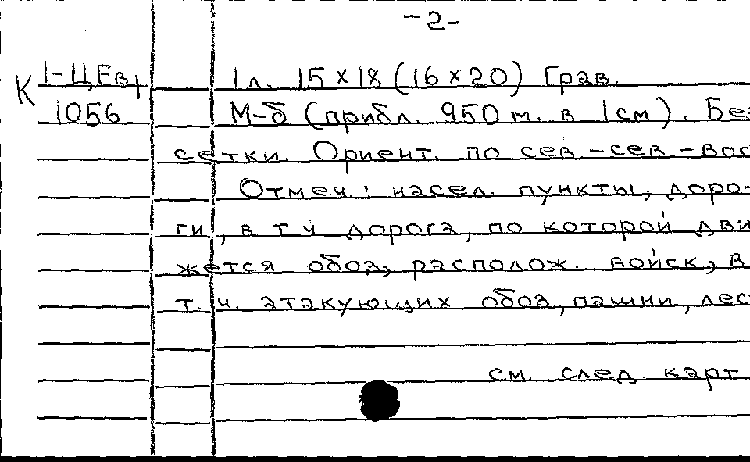 -2-
К 1-ЦЕв+ 1л. 15×18 (16×20) Грав.
1056 М-б (прибл. 950 м. в 1см). Без
сетки. Ориент. по сев.-сев.-вос
Отмеч: насел. пункты, доро-
ги, в т.ч дорога, по которой дви
жется обоз, располож. войск, в
т. ч. атакующих обоз, пашни, лес
см. след. карт